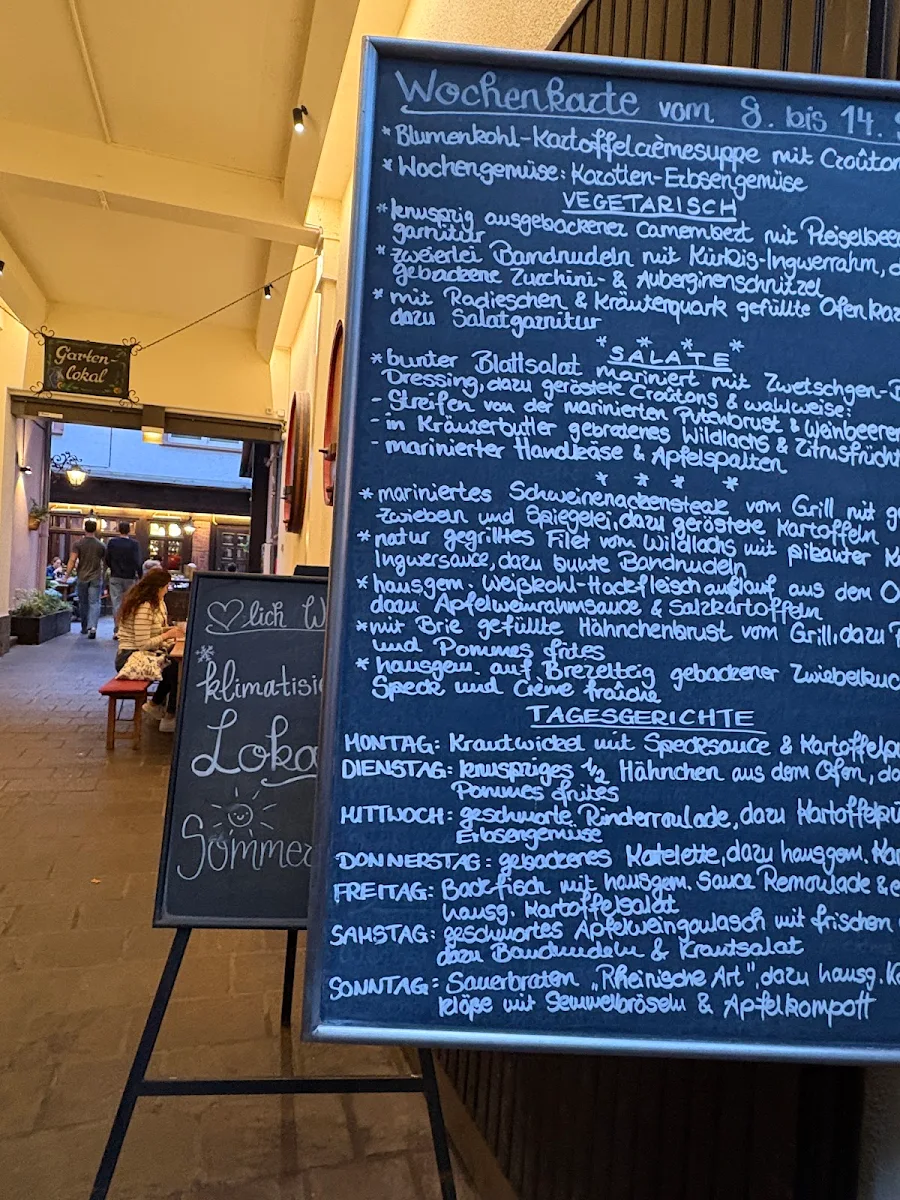 Wochenkarte vom 8. bis 14.
*Blumenkohl-Kartoffelcrèmesuppe mit Croûton
*Wochengemüse: Karotten-Erbsengemüse
VEGETARISCH
*knusprig ausgebackener Camembert mit Preiselbee
garnitur
*zweierlei Bandnudeln mit Kürbis-Ingwerrahm, d
gebackene Zucchini- & Auberginenschnitzel
*mit Radieschen & Kräuterquark gefüllte Ofenkar
dazu Salatgarnitur
*SALATE*
*bunter Blattsalat mariniert mit Zwetschgen-B
Dressing, dazu geröstete Croûtons & wahlweise:
- Streifen von der marinierten Putenbrust & Weinbeeren
- in Kräuterbutter gebratenes Wildlachs & Zitrusfrücht
- marinierter Handkäse & Apfelspalten
* * * *
*mariniertes Schweinenackensteak vom Grill mit g
Zwiebeln und Spiegelei, dazu geröstete Kartoffeln
*natur gegrilltes Filet vom Wildlachs mit pikanter K
Ingwersauce, dazu bunte Bandnudeln
*hausgem. Weißkohl-Hackfleischauflauf aus dem O
dazu Apfelweinrahmsauce & Salzkartoffeln
*mit Brie gefüllte Hähnchenbrust vom Grill, dazu
und Pommes frites
*hausgem. auf Brezelteig gebackener Zwiebelkuc
Speck und Crème fraîche
TAGESGERICHTE
MONTAG: Krautwickel mit Specksauce & Kartoffelpü
DIENSTAG: knuspriges ½ Hähnchen aus dem Ofen, da
Pommes frites
MITTWOCH: geschmorte Rinderroulade, dazu Kartoffelpü
Erbsengemüse
DONNERSTAG: gebackenes Kotelette, dazu hausgem. Kar
FREITAG: Backfisch mit hausgem. Sauce Remoulade &
hausg. Kartoffelsalat
SAMSTAG: geschmortes Apfelweingulasch mit frischen
dazu Bandnudeln & Krautsalat
SONNTAG: Sauerbraten „Rheinische Art", dazu hausg. Ka
klöße mit Semmelbröseln & Apfelkompott
Garten-
lokal
♡lich W
*klimatisie
Loka
Sommer